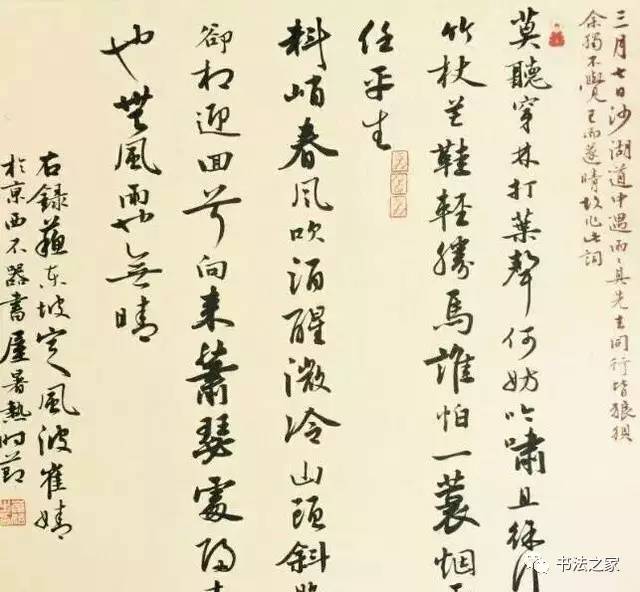 三月七日沙湖道中遇雨々具先去同行皆狼狽
余獨不覺已而遂晴故作此詞
莫聽穿林打葉聲何妨吟嘯且徐行
竹杖芒鞋輕勝馬誰怕一蓑烟
任平生
料峭春風吹酒醒微冷山頭斜照
卻相迎回首向來蕭瑟處歸去
也無風雨也無晴
右錄蘇東坡定風波崔婧
於京西不器書屋暑熱時節
书法之家